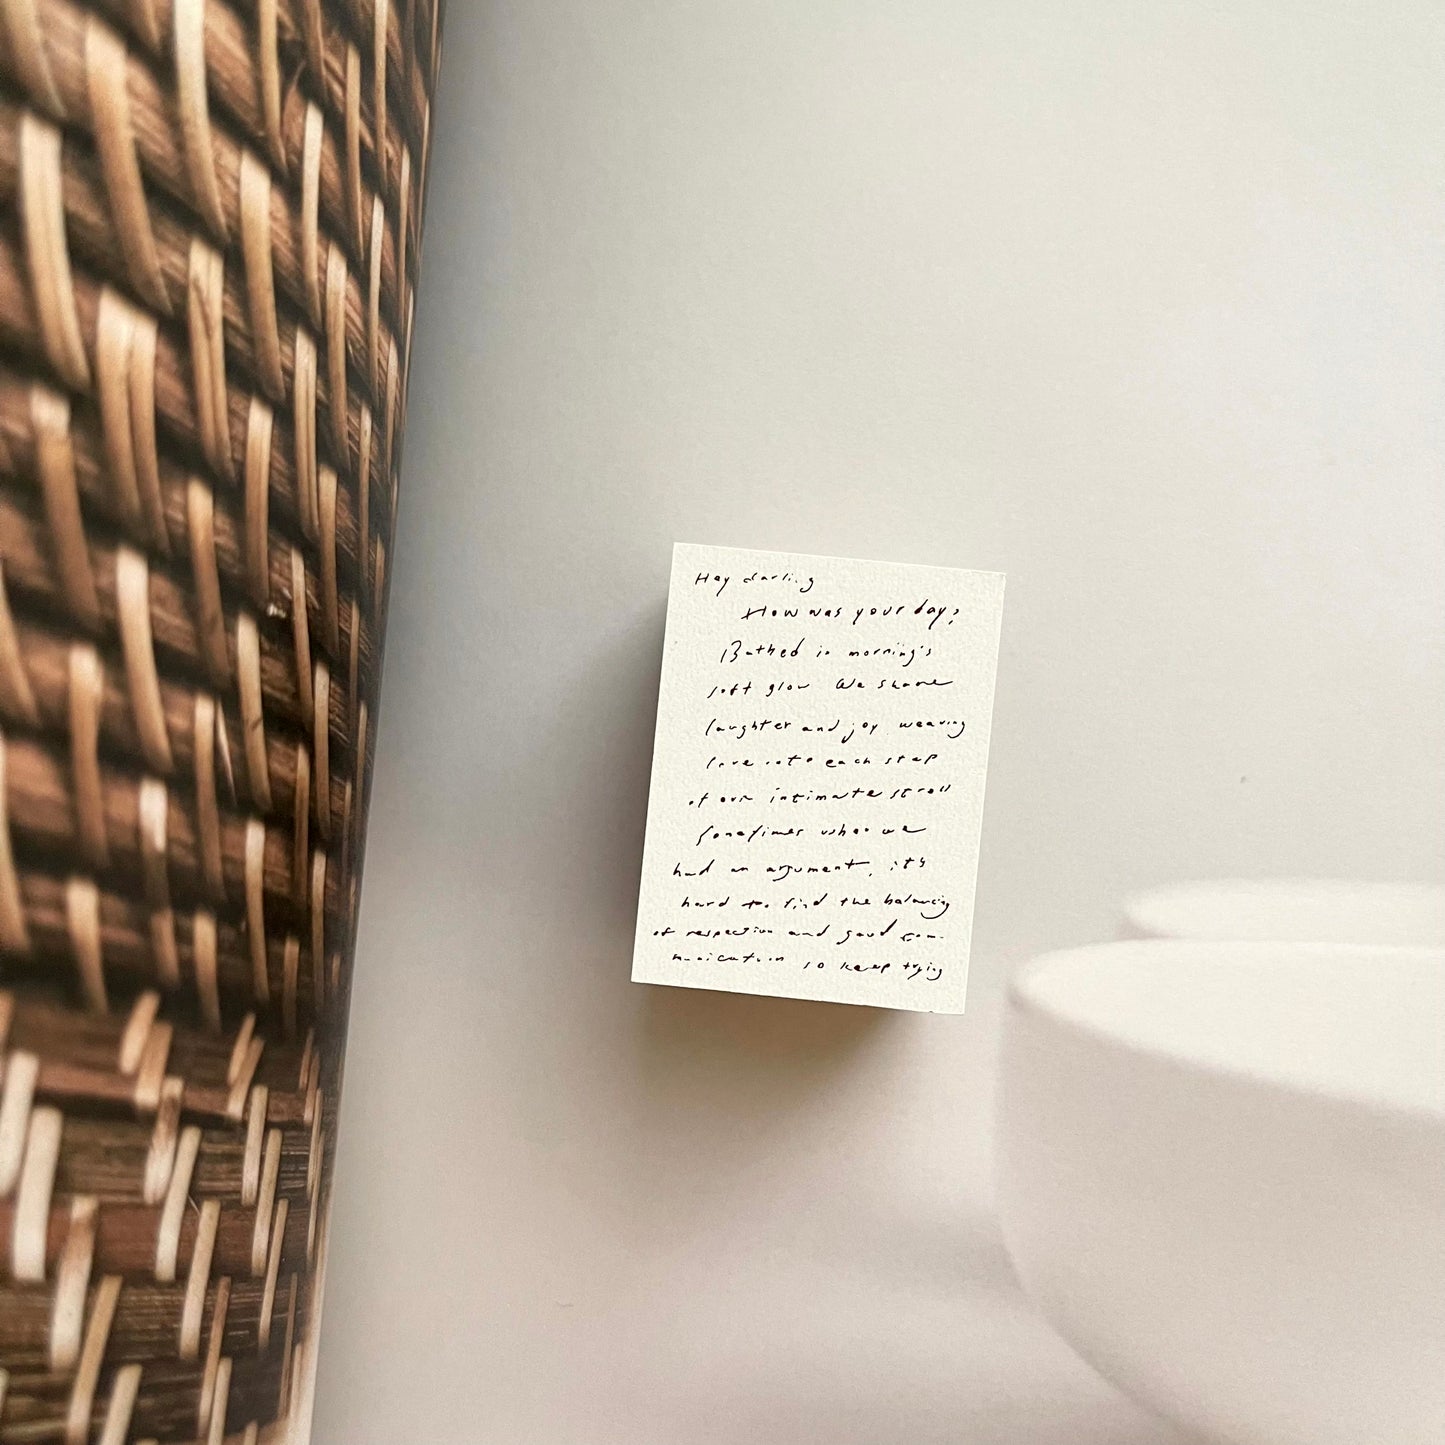 Hey darling
How was your day?
Bathed in morning's
soft glow We share
laughter and joy weaving
love into each step
of our intimate stroll
Sometimes when we
had an argument, it's
hard to find the balancing
of respection and good com-
munication so keep trying